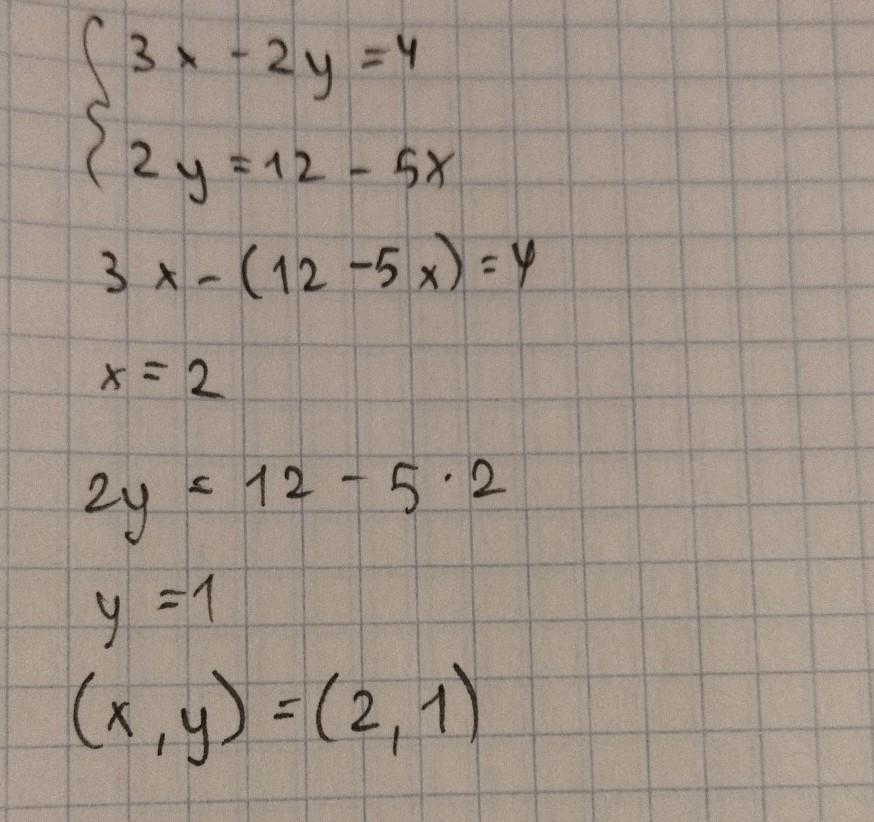 { 3x - 2y = 4
{ 2y = 12 - 5x
3x - (12 - 5x) = 4
x = 2
2y = 12 - 5 · 2
y = 1
(x, y) = (2, 1)